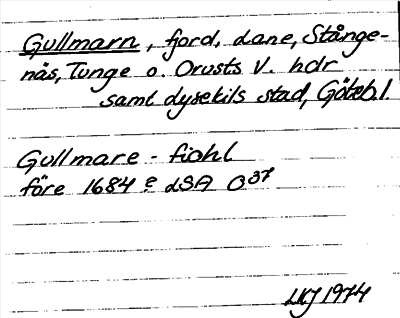 Gullmarn, fjord, Lane, Stånge-
näs, Tunge o. Orusts V. hdr
samt Lysekils stad, Göteb.l.
Gullmare - fiohl
före 1684 e LSA O 37
LKJ 1974